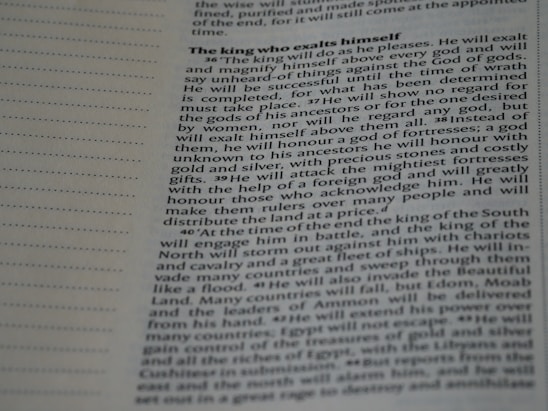 the wise will stumble
fined, purified and made spotless
of the end, for it will still come at the appointed
time.
The king who exalts himself
36 'The king will do as he pleases. He will exalt
and magnify himself above every god and will
say unheard-of things against the God of gods.
He will be successful until the time of wrath
is completed, for what has been determined
must take place. 37 He will show no regard for
the gods of his ancestors or for the one desired
by women, nor will he regard any god, but
will exalt himself above them all. 38 Instead of
them, he will honour a god of fortresses; a god
unknown to his ancestors he will honour with
gold and silver, with precious stones and costly
gifts. 39 He will attack the mightiest fortresses
with the help of a foreign god and will greatly
honour those who acknowledge him. He will
make them rulers over many people and will
distribute the land at a price. d
40 'At the time of the end the king of the South
will engage him in battle, and the king of the
North will storm out against him with chariots
and cavalry and a great fleet of ships. He will in-
vade many countries and sweep through them
like a flood. 41 He will also invade the Beautiful
Land. Many countries will fall, but Edom, Moab
and the leaders of Ammon will be delivered
from his hand. 42 He will extend his power over
many countries; Egypt will not escape. 43 He will
gain control of the treasures of gold and silver
and all the riches of Egypt, with the Libyans and
Cushites e in submission. 44 But reports from the
east and the north will alarm him, and he will
set out in a great rage to destroy and annihilate